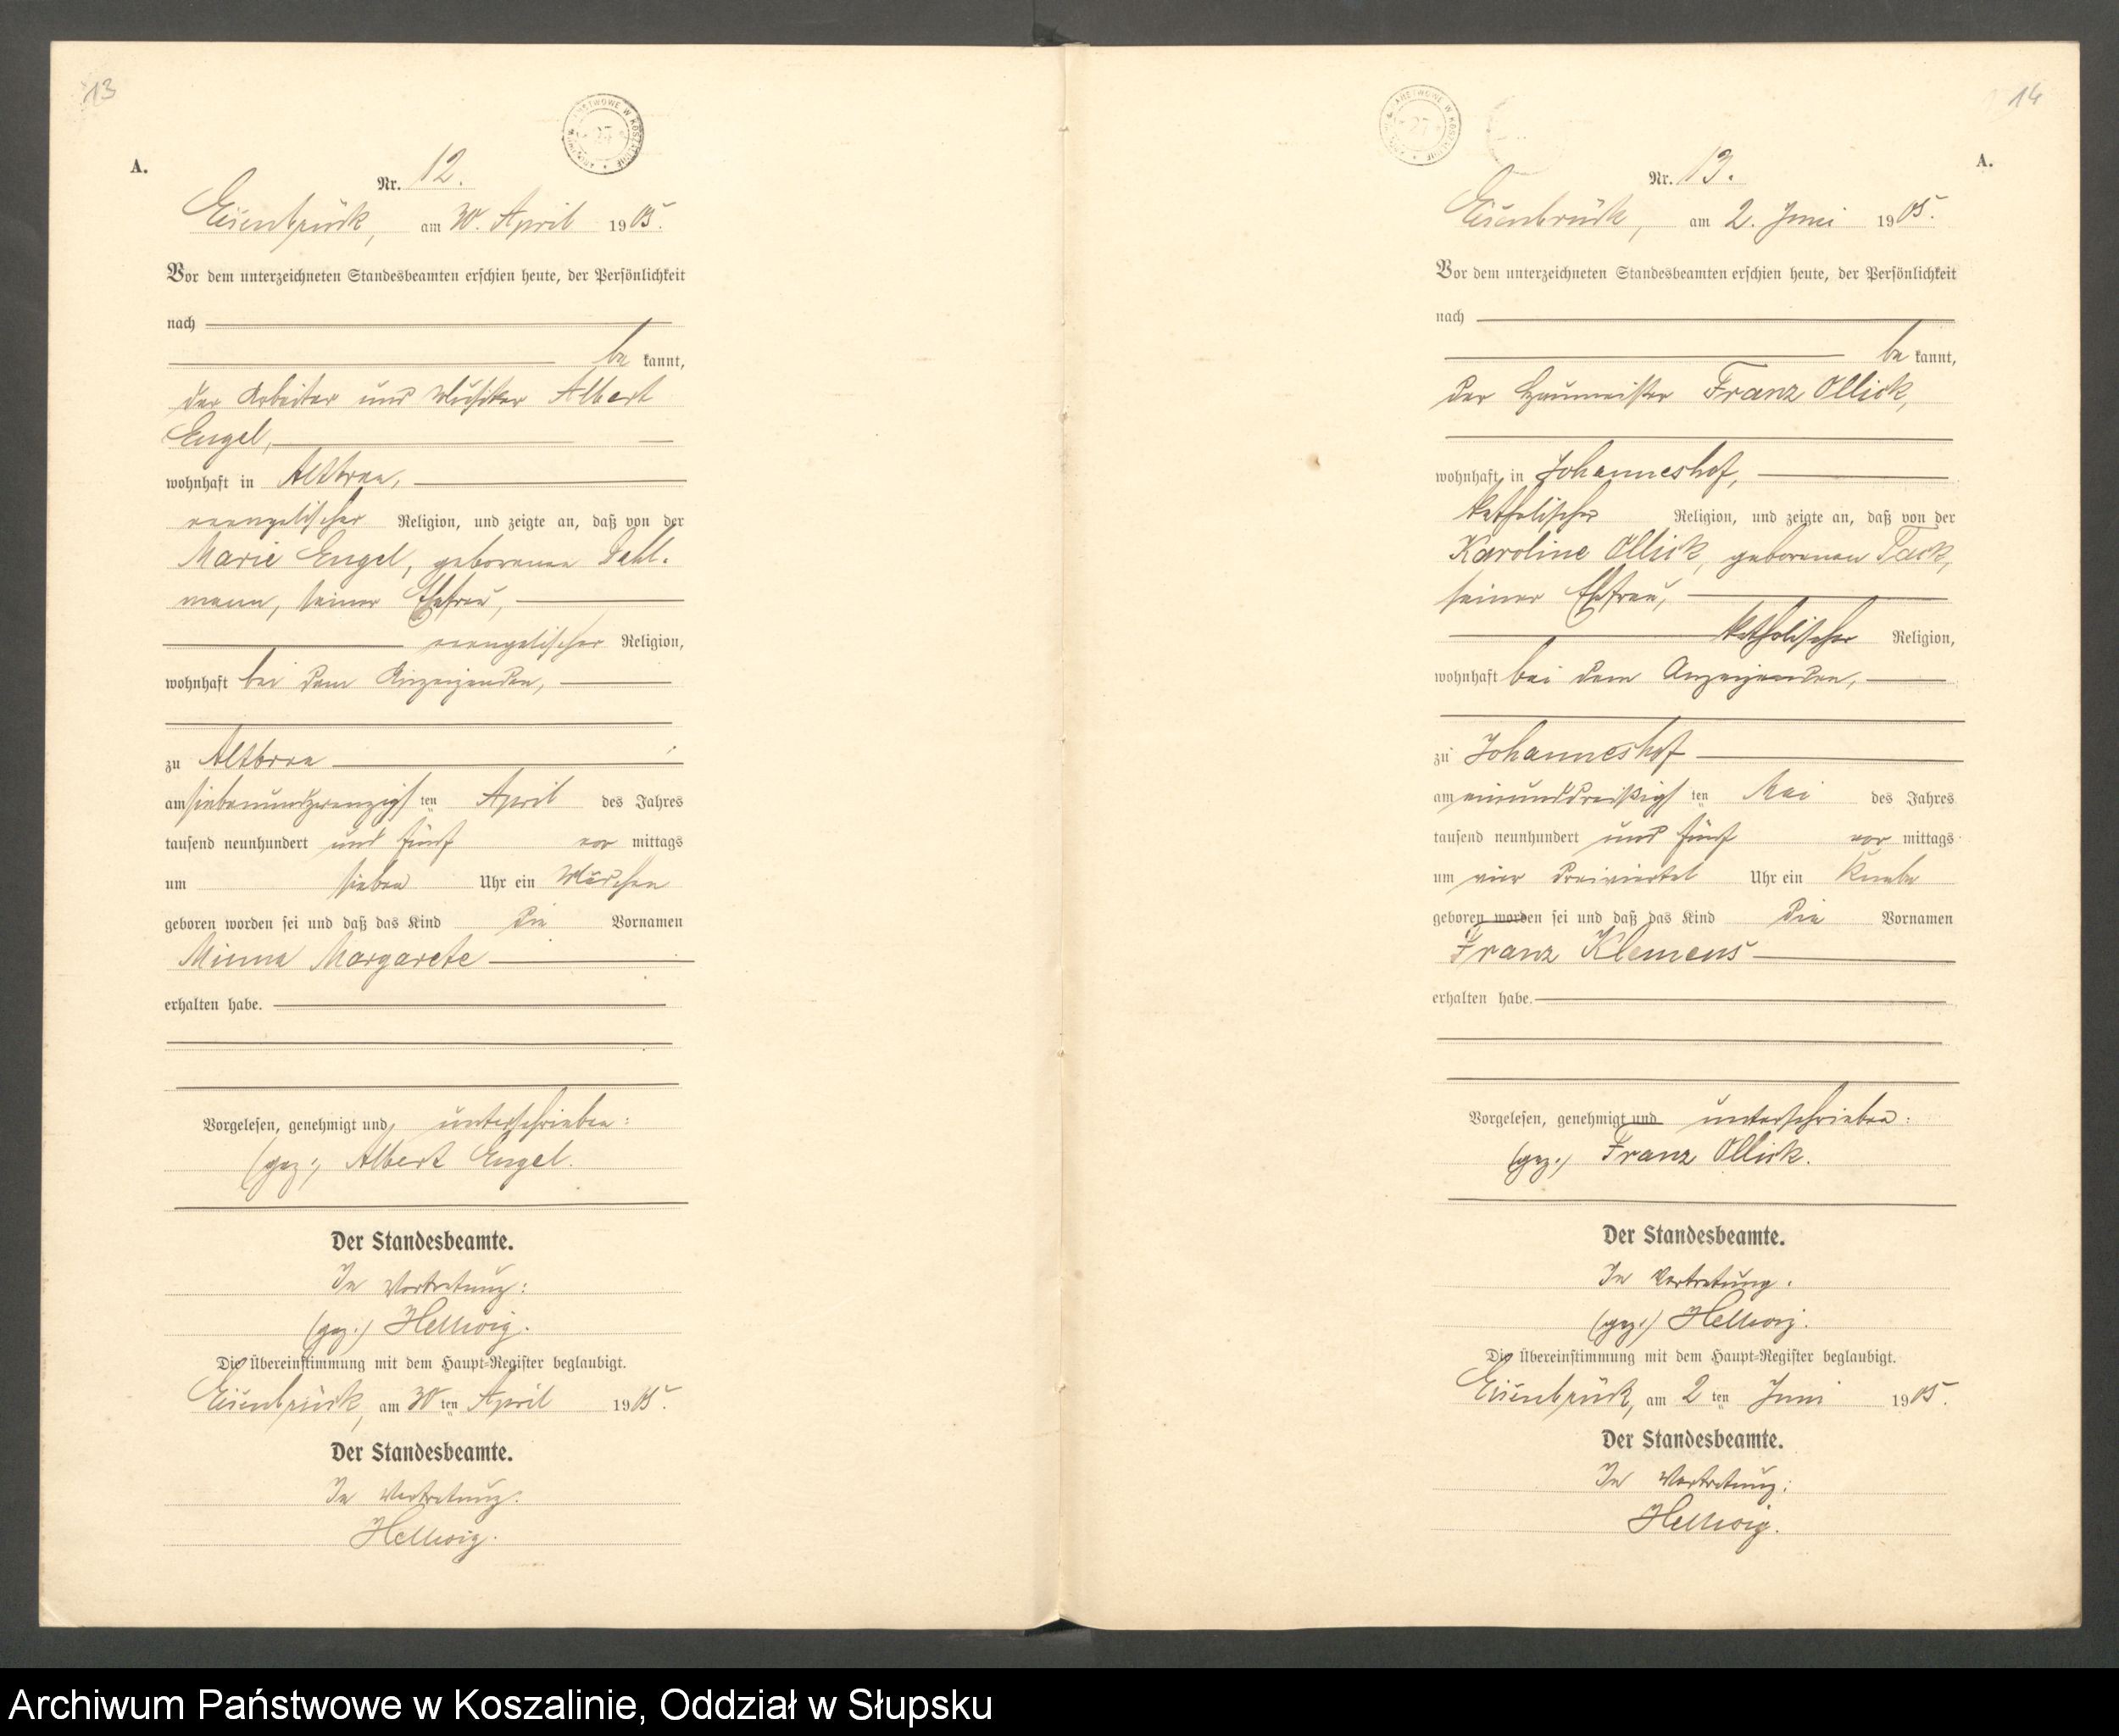 13
A.
Nr. 12.
Eisenbrück, am 30. April 1905.
Vor dem unterzeichneten Standesbeamten erschien heute, der Persönlichkeit
nach
be kannt,
der Arbeiter und Musiker Albert
Engel,
wohnhaft in Altbraa,
evangelischer Religion, und zeigte an, daß von der
Marie Engel, geborenen Dahl-
mann, seiner Ehefrau,
evangelischer Religion,
wohnhaft bei dem Anzeigenden,
zu Altbraa
am siebenundzwanzigsten April des Jahres
tausend neunhundert und fünf vor mittags
um sieben Uhr ein Mädchen
geboren worden sei und daß das Kind die Vornamen
Minna Margarete
erhalten habe.
Vorgelesen, genehmigt und unterschrieben:
(gez.) Albert Engel.
Der Standesbeamte.
In Vertretung:
(gez.) Hellwig.
Die Übereinstimmung mit dem Haupt-Register beglaubigt.
Eisenbrück, am 30 ten April 1905.
Der Standesbeamte.
In Vertretung:
Hellwig.
14
A.
ARCHIWUM PAŃSTWOWE W KOSZALINIE
27
Nr. 13.
Eisenbrück, am 2. Juni 1905.
Vor dem unterzeichneten Standesbeamten erschien heute, der Persönlichkeit
nach
be kannt,
der Haumeister Franz Ollick,
wohnhaft in Johanneshof,
katholischer Religion, und zeigte an, daß von der
Karoline Ollick, geborenen Tack,
seiner Ehefrau,
katholischer Religion,
wohnhaft bei dem Anzeigenden,
zu Johanneshof
am einunddreißigsten Mai des Jahres
tausend neunhundert und fünf vor mittags
um vier dreiviertel Uhr ein Knabe
geboren worden sei und daß das Kind die Vornamen
Franz Klemens
erhalten habe.
Vorgelesen, genehmigt und unterschrieben:
(gez.) Franz Ollick.
Der Standesbeamte.
In Vertretung.
(gez.) Hellwig.
Die Übereinstimmung mit dem Haupt-Register beglaubigt.
Eisenbrück, am 2 ten Juni 1905.
Der Standesbeamte.
In Vertretung:
Hellwig.
Archiwum Państwowe w Koszalinie, Oddział w Słupsku